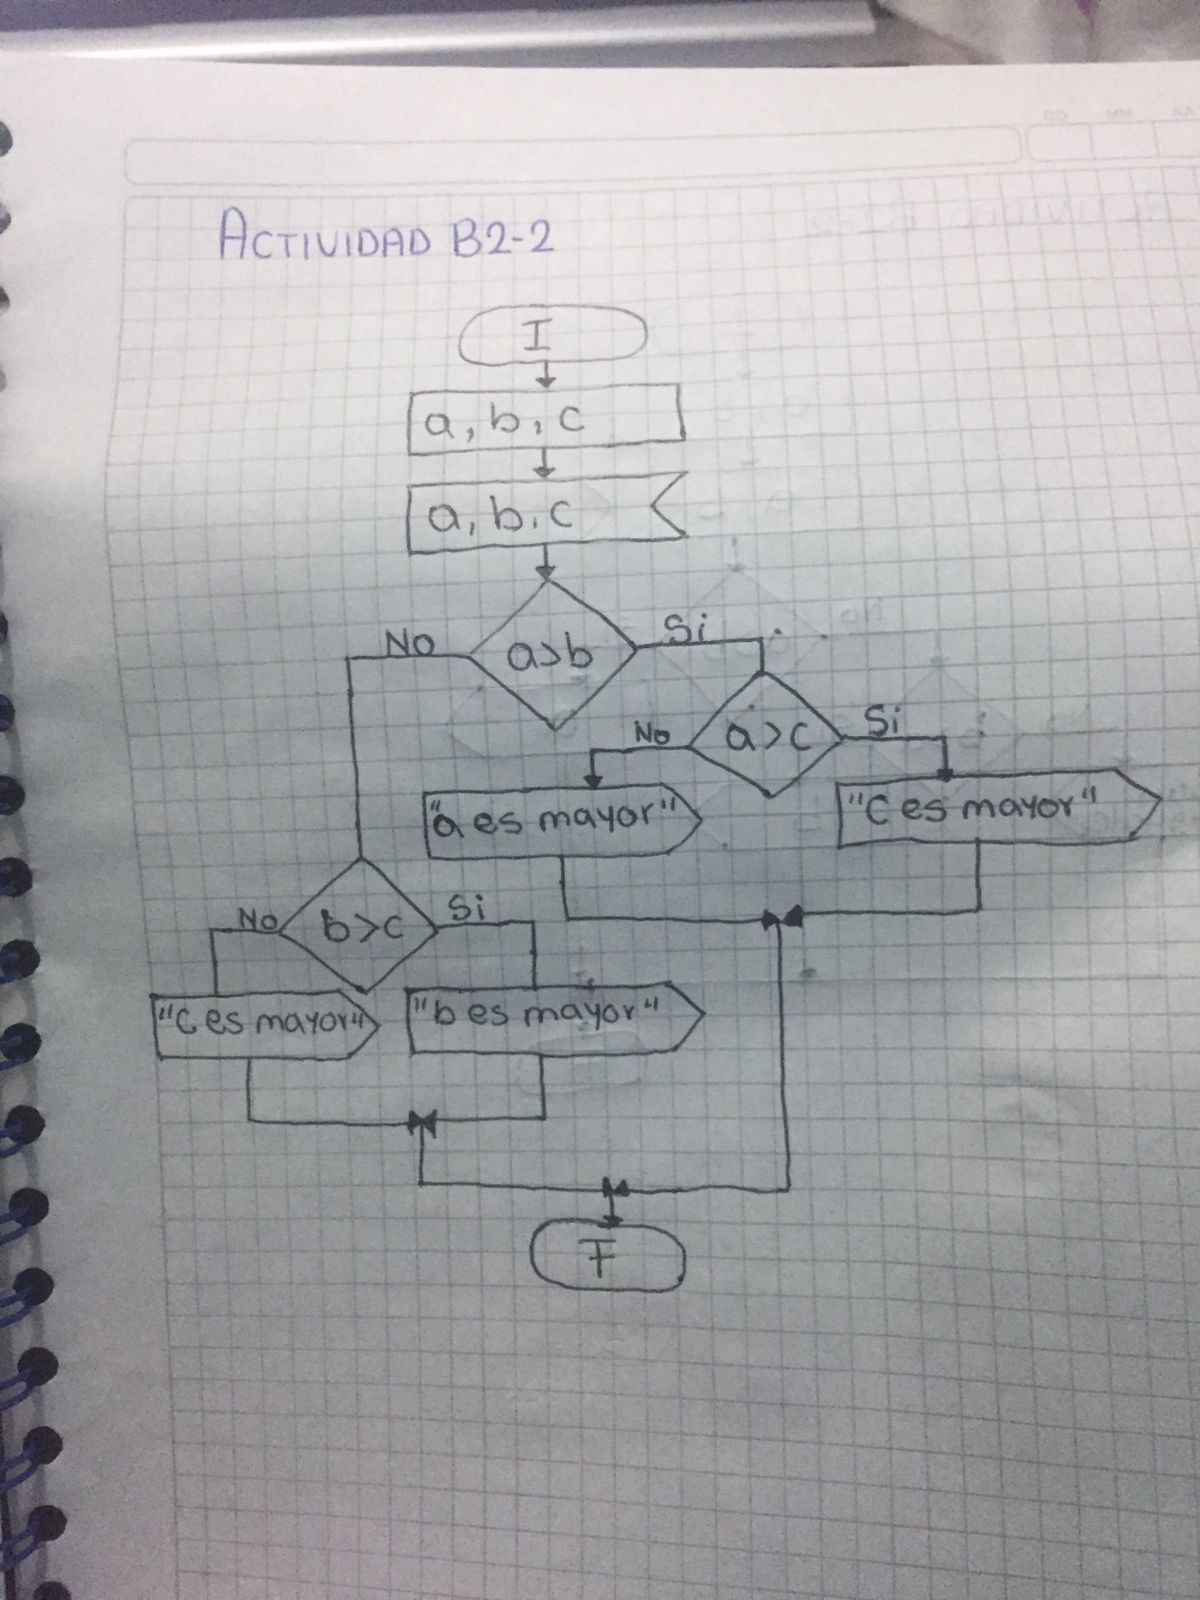 ACTIVIDAD B2-2
I
a, b, c
a, b, c
No a>b Si
No a>c Si
"a es mayor" "C es mayor"
No b>c Si
"C es mayor" "b es mayor"
F